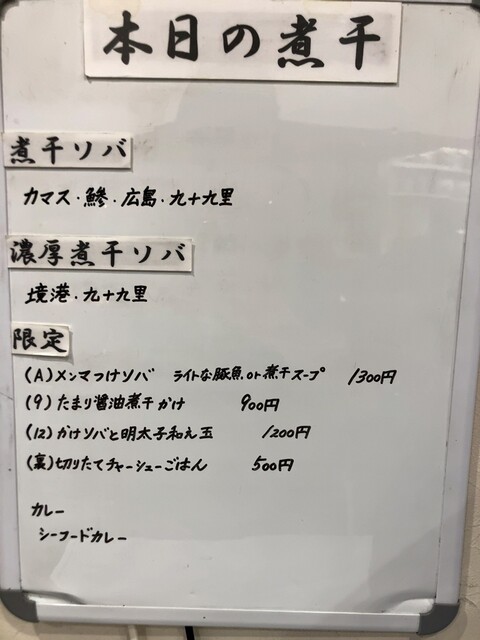 本日の煮干
煮干ソバ
カマス・鯵・広島・九十九里
濃厚煮干ソバ
境港・九十九里
限定
(A)メンマつけソバ ライトな豚魚or煮干スープ 1300円
(9)たまり醤油煮干かけ 900円
(12)かけソバと明太子和え玉 1200円
(裏)切りたてチャーシューごはん 500円
カレー
シーフードカレー